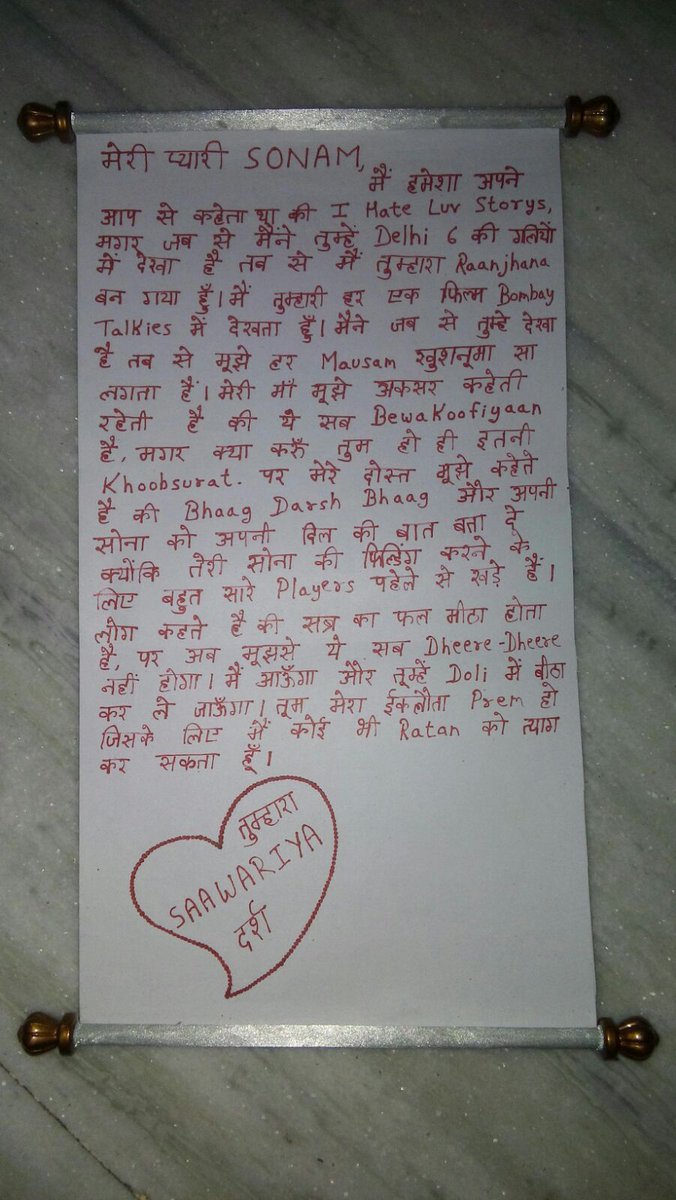 मेरी प्यारी SONAM,
मैं हमेशा अपने
आप से कहेता था की I Hate Luv Storys,
मगर जब से मैंने तुम्हें Delhi 6 की गलियों
में देखा है तब से मैं तुम्हारा Raanjhana
बन गया हूँ। मैं तुम्हारी हर एक फिल्म Bombay
Talkies में देखता हूँ। मैने जब से तुम्हे देखा
है तब से मूझे हर Mausam खुशनूमा सा
लगता है। मेरी माँ मूझे अकसर कहेती
रहेती है की ये सब Bewakoofiyaan
है, मगर क्या करूँ तुम हो ही इतनी
Khoobsurat. पर मेरे दोस्त मूझे कहेते
है की Bhaag Darsh Bhaag और अपनी
सोना को अपनी दिल की बात बता दे
क्योंकि तेरी सोना की फिल्डिंग करने के
लिए बहुत सारे Players पहेले से खड़े हैं।
लोग कहते है की सब्र का फल मीठा होता
है, पर अब मूझसे ये सब Dheere-Dheere
नहीं होगा। मैं आऊँगा और तूम्हें Doli में बीठा
कर ले जाऊँगा। तूम मेरा ईकलौता Prem हो
जिसके लिए मैं कोई भी Ratan को त्याग
कर सकता हूँ।
तुम्हारा
SAAWARIYA
दर्श